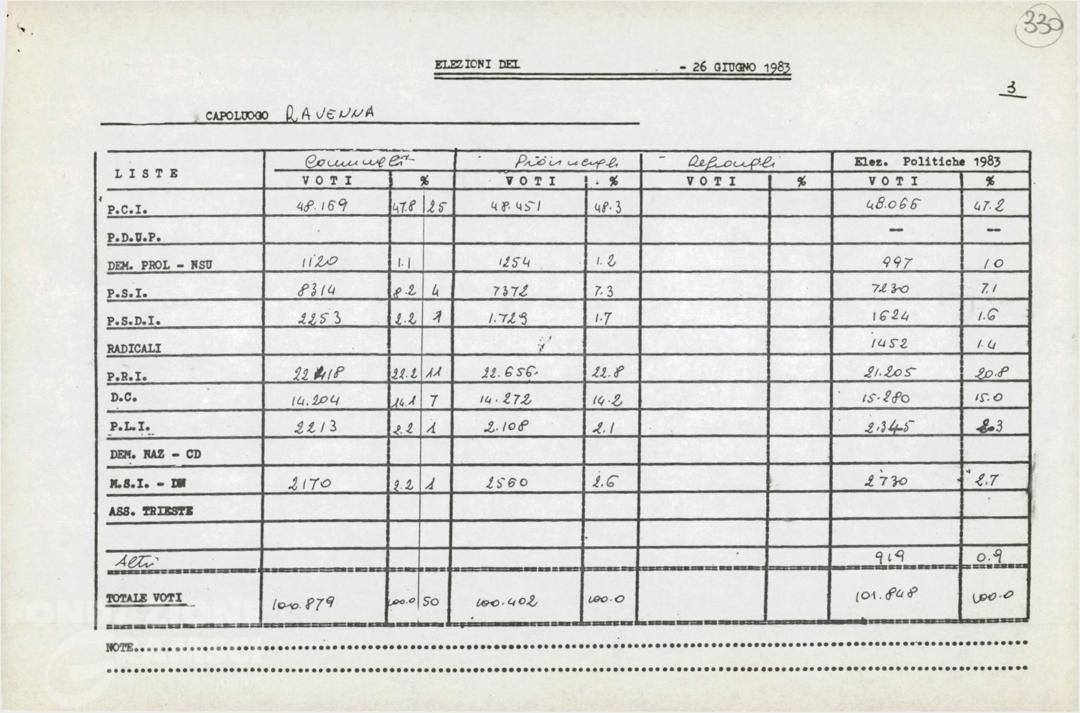 330
ELEZIONI DEL - 26 GIUGNO 1983
3
CAPOLUOGO RAVENNA
LISTE Comunali Provinciali Regionali Elez. Politiche 1983
VOTI % VOTI % VOTI % VOTI %
P.C.I. 48.169 47.8 25 48.451 48.3 48.066 47.2
P.D.U.P. -- --
DEM. PROL - NSU 1120 1.1 1254 1.2 997 1.0
P.S.I. 8314 8.2 4 7372 7.3 7230 7.1
P.S.D.I. 2253 2.2 1 1.729 1.7 1624 1.6
RADICALI 1452 1.4
P.R.I. 22418 22.2 11 22.656 22.8 21.205 20.8
D.C. 14.204 14.1 7 14.272 14.2 15.280 15.0
P.L.I. 2213 2.2 1 2.108 2.1 2.345 2.3
DEM. NAZ - CD
M.S.I. - DN 2170 2.2 1 2560 2.6 2730 2.7
ASS. TRIESTE
Altri 919 0.9
TOTALE VOTI 100.879 100.0 50 100.402 100.0 101.848 100.0
FONDAZIONE
NOTE